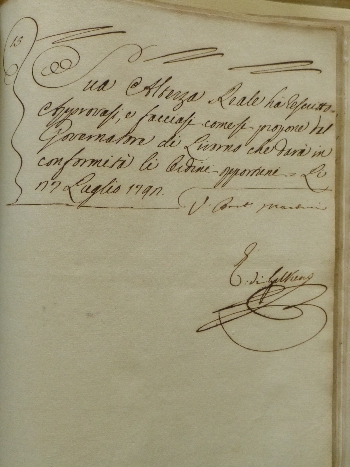 15
Sua Altezza Reale ha rescritto
Approvasi, e facciasi come si propone dal
Governatore di Livorno che darà in
conformità li Ordini opportuni
Luglio